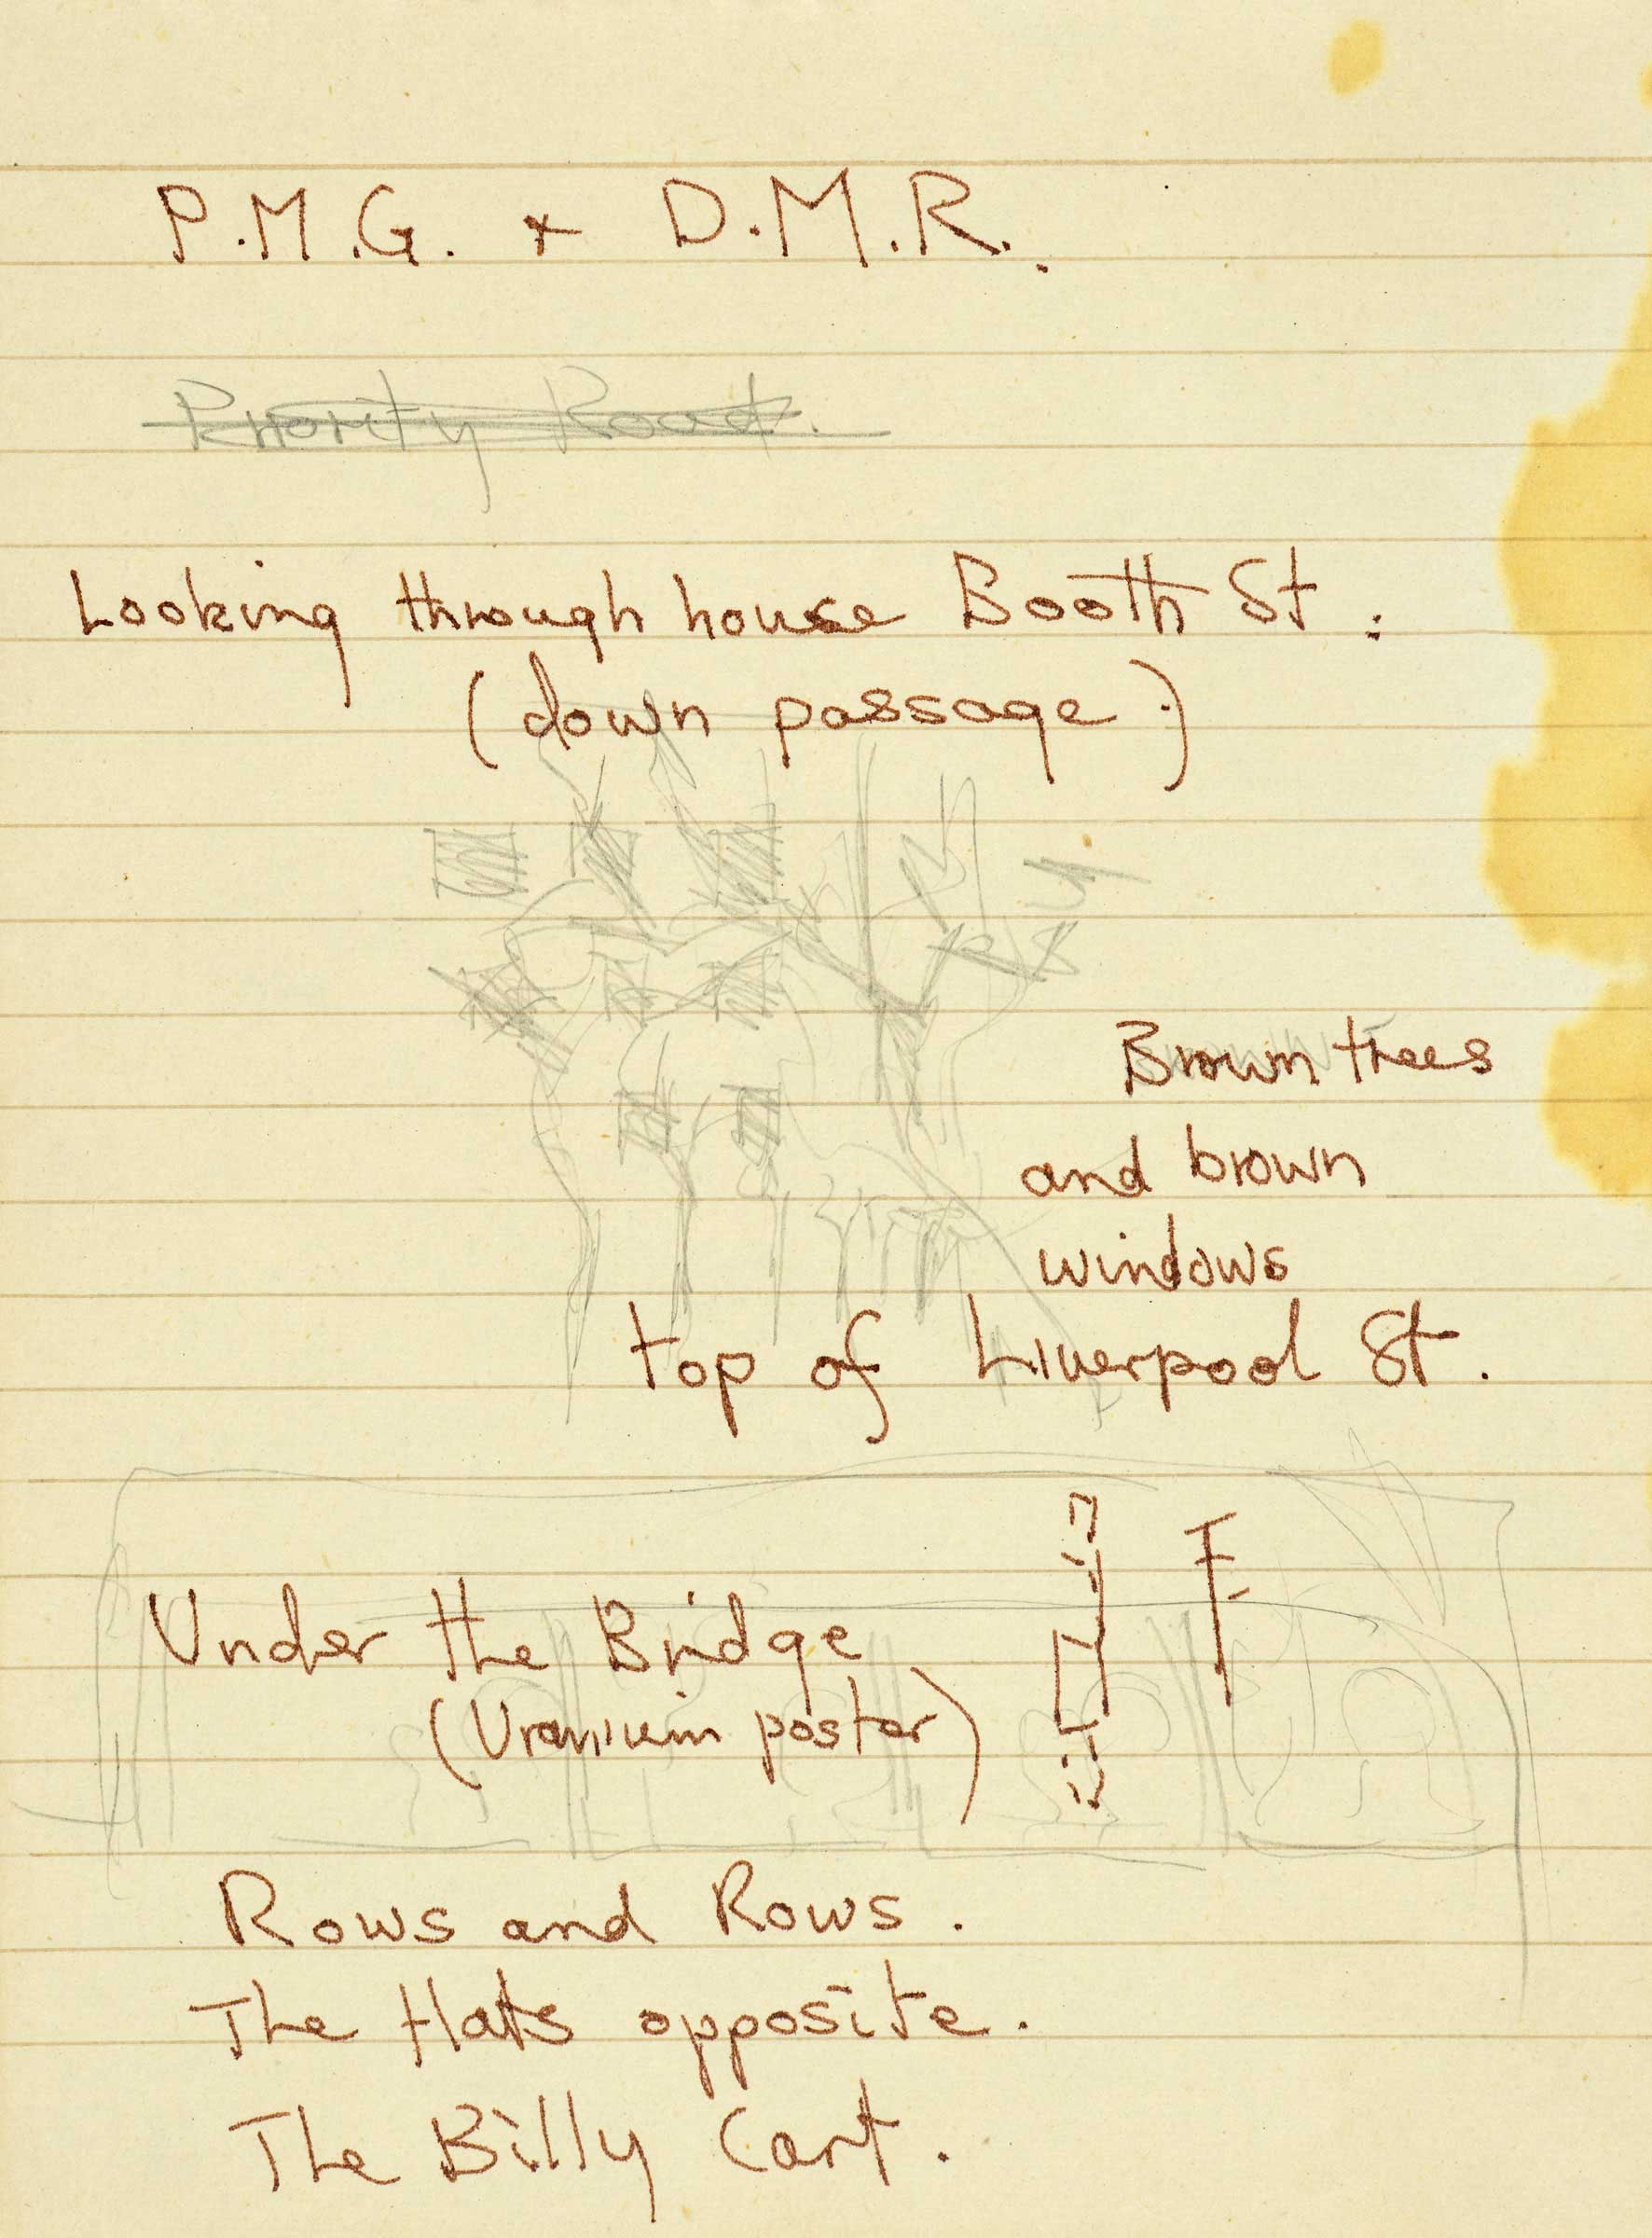 P.M.G. + D.M.R.
Priority Road.
Looking through house Booth St.
(down passage.)
Brown trees
and brown
windows
top of Liverpool St.
Under the Bridge
(Uranium poster)
Rows and Rows.
The flats opposite.
The Billy Cart.